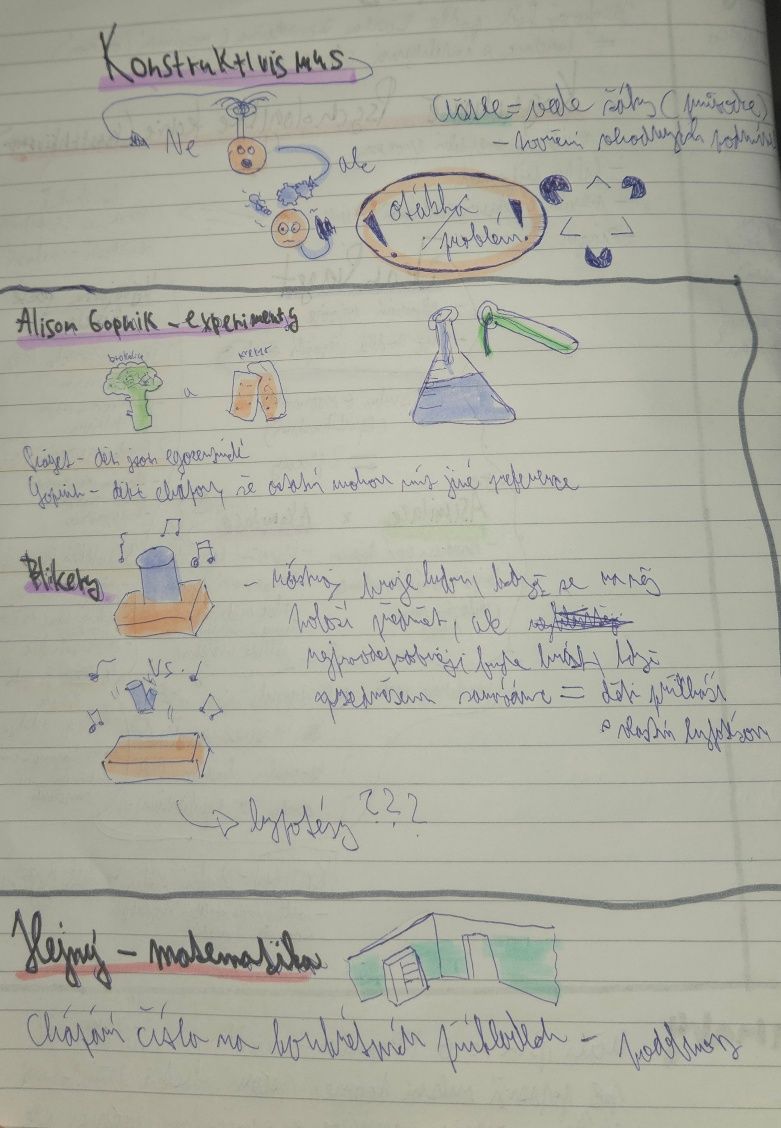 Konstruktivismus
Ne
ale
učitel = vede žáky (průvodce)
- tvoření vhodných podmínek
otázka
/
problém
Alison Gopnik - experimenty
brokolice
a
krekr
Piaget - děti jsou egocentrické
Gopnik - děti chápou, že ostatní mohou mít jiné preference
Blikety
- nástroj hraje hudbu, když se na něj
položí předmět, ale
nejpravděpodobněji bude hrát, když
předmětem zamáváme = děti přichází
s vlastní hypotézou
vs.
hypotézy ???
Hejný - matematika
Chápání čísla na konkrétních příkladech -